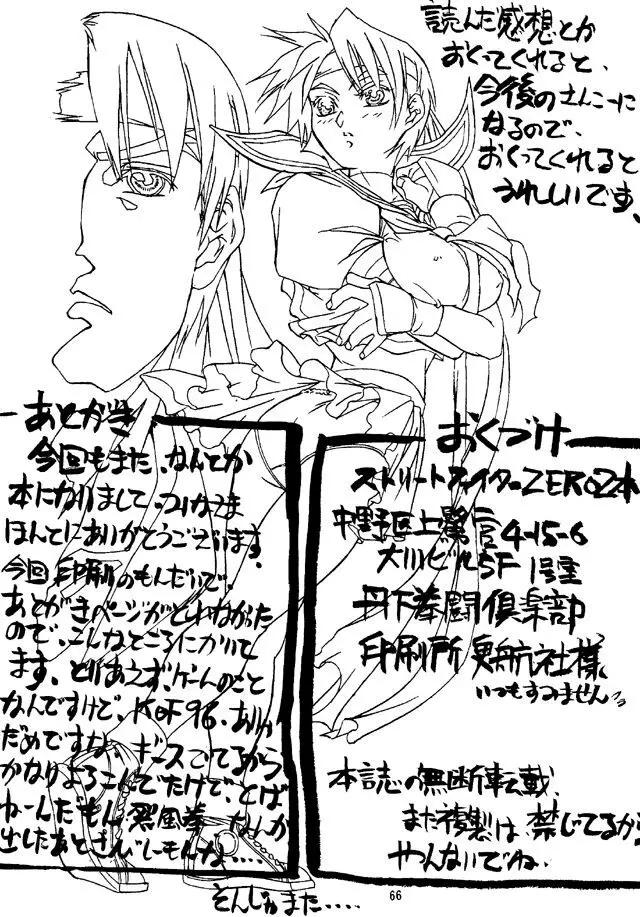 読んだ感想とか
おくってくれると、
今後のさんこーに
なるので、
おくってくれると
うれしいです、
あとがき
今回もまた、なんとか
本になりまして、みなさま
ほんとにありがとうございます、
今回 印刷のもんだいで、
あとがきページがとれなかった
ので、こんなところにかいて
ます、とりあえず、ゲームのこと
なんですけど、KOF96、あれ
だめですな、ギースでてるから
かなりよろこんでたけど、とば
ねーんだもん 烈風拳 なんか
出したあとさびしーもんな....
そんじゃまた....
おくづけ
ストリートファイターZERO2本
中野区上鷺宮4-15-6
大川ビル5F 1号室
丹下拳闘倶楽部
印刷所 航社様
いつもすみません
本誌の無断転載、
また複製は、禁じてるから
やんないでね、
66